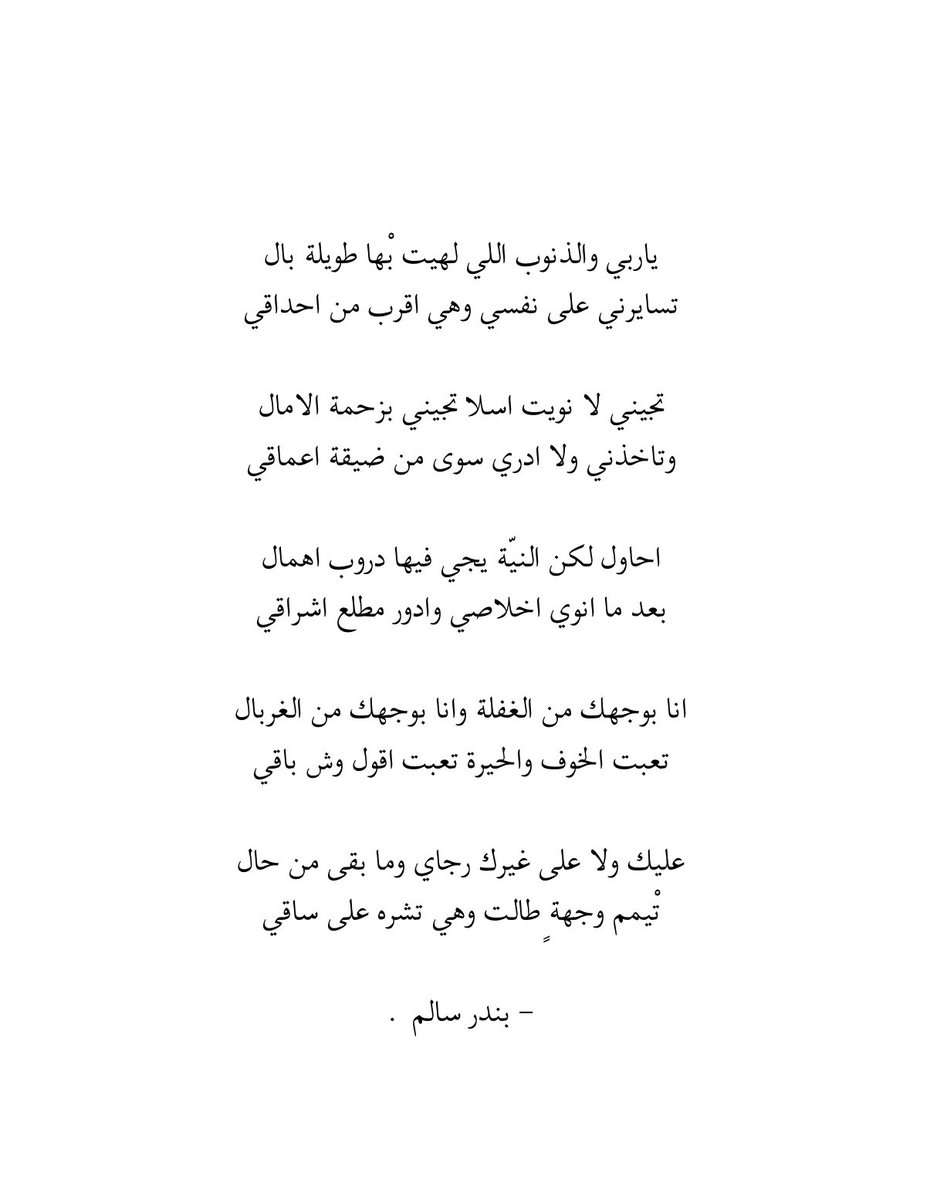 ياربي والذنوب اللي لهيت بْها طويلة بال
تسايرني على نفسي وهي اقرب من احداقي
تجيني لا نويت اسلا تجيني بزحمة الامال
وتاخذني ولا ادري سوى من ضيقة اعماقي
احاول لكن النيّة يجي فيها دروب اهمال
بعد ما انوي اخلاصي وادور مطلع اشراقي
انا بوجهك من الغفلة وانا بوجهك من الغربال
تعبت الخوف والحيرة تعبت اقول وش باقي
عليك ولا على غيرك رجاي وما بقى من حال
تْيمم وجهةٍ طالت وهي تشره على ساقي
– بندر سالم .